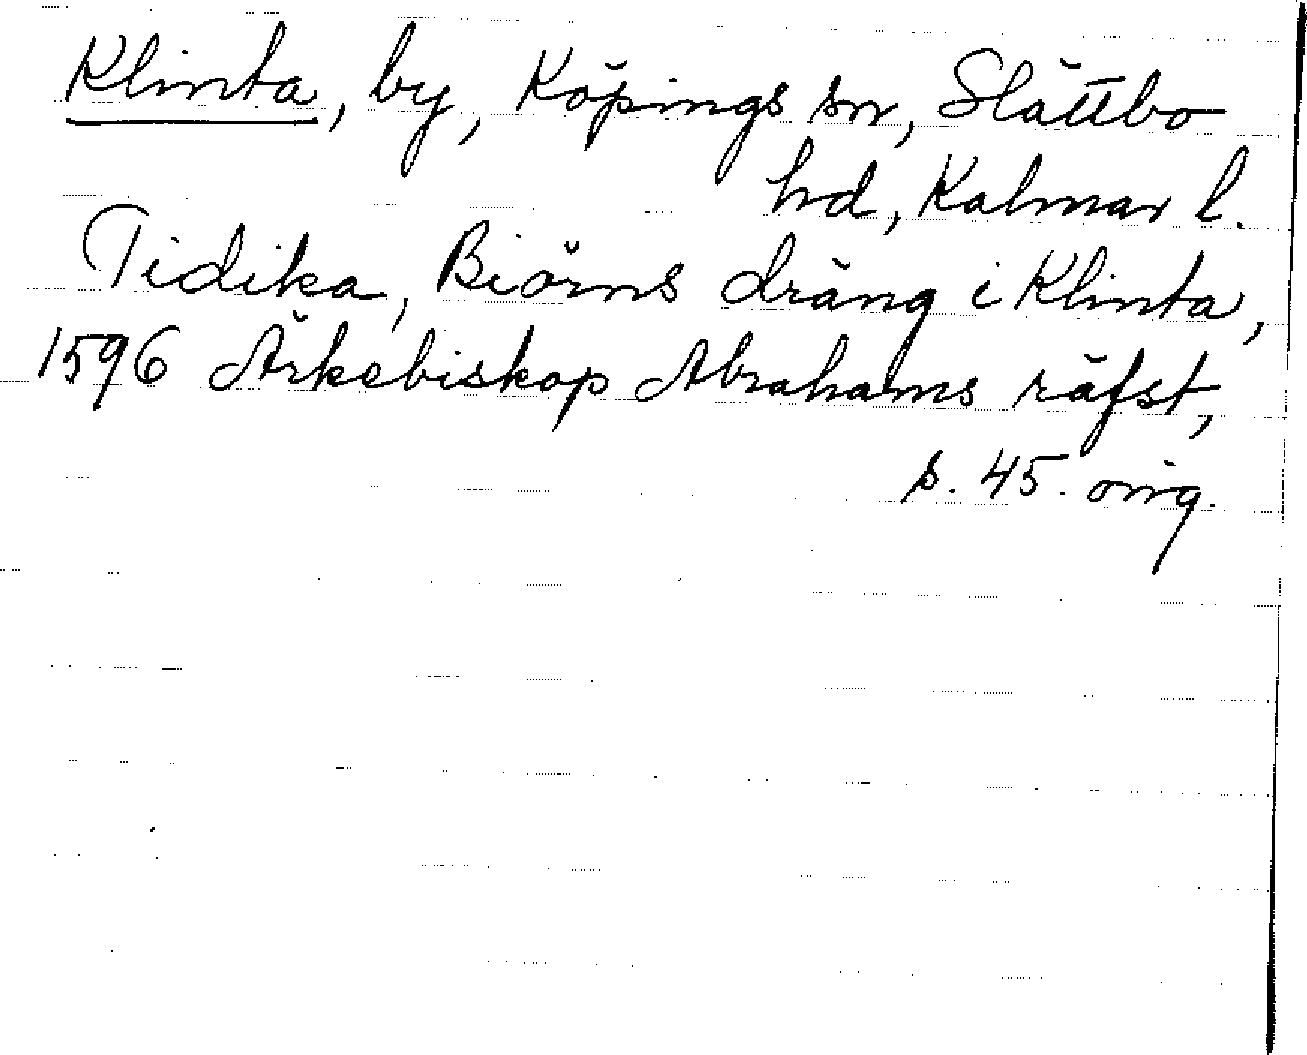 Klinta, by, Köpings sn, Slättbo
hd, Kalmar l.
Tidika, Biörns dräng i Klinta,
1596 Ärkebiskop Abrahams räfst,
s. 45. orig.